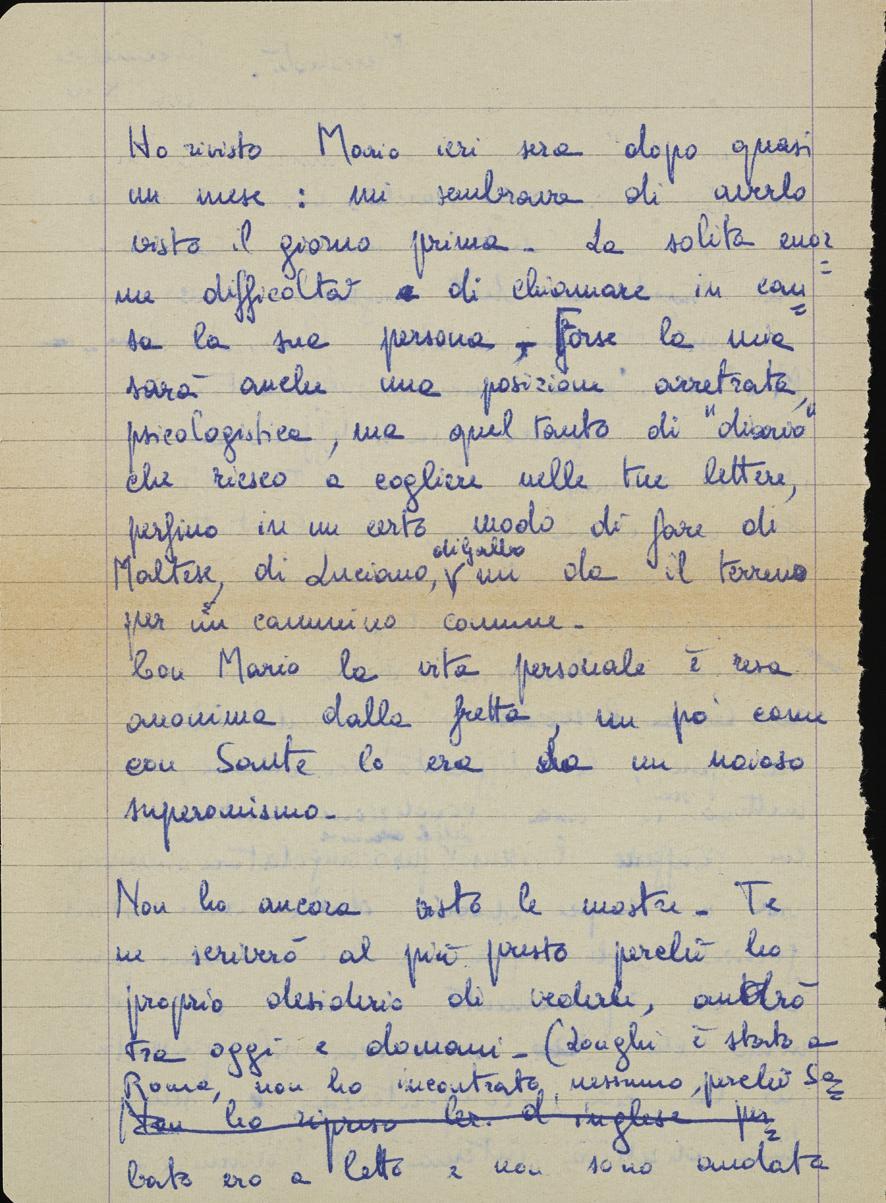 Ho rivisto Mario ieri sera dopo quasi
un mese : mi sembrava di averlo
visto il giorno prima - La solita enor=
me difficoltà di chiamare in cau=
sa la sua persona - Forse la mia
sarà anche una posizione arretrata,
psicologistica, ma quel tanto di "diario"
che riesco a cogliere nelle tue lettere,
perfino in un certo modo di fare di
Maltese, di Luciano, di Gallo mi da il terreno
per un cammino comune -
Con Mario la vita personale è resa
anonima dalla fretta, un po' come
con Sante lo era da un noioso
superomismo -
Non ho ancora visto le mostre - Te
ne scriverò al più presto perchè ho
proprio desiderio di vederle, andrò
tra oggi e domani - (Longhi è stato a
Roma, non ho incontrato nessuno, perchè Sa=
Non ho ripreso lez. d'inglese per=
bato ero a letto e non sono andata